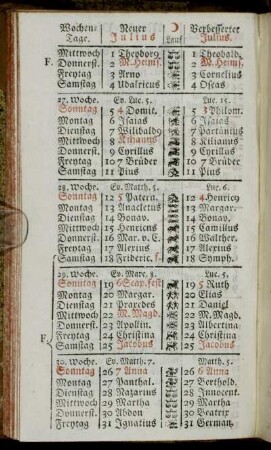 Wochen- Neuer Verbesserter
Tage. Julius Lauf Julius.
Mittwoch 1 Theobory 1 Theobald
F. Donnerst. 2 M. Heims. 2 M. Heims.
Freytag 3 Arno 3 Cornelius
Samstag 4 Udalricus 4 Oseas
27. Woche. Ev. Luc. 5. Luc. 15.
Sonntag 5 4 Domit. 5 3 Philom.
Montag 6 Isaias 6 Isaias
Dienstag 7 Wilibald 7 Partänius
Mittwoch 8 Kilianus 8 Kilianus
Donnerst. 9 Cyrillus 9 Cyrillus
Freytag 10 7 Brüder 10 7 Brüder
Samstag 11 Pius 11 Pius
28. Woche. Ev. Matth. 5. Luc. 6.
Sonntag 12 5 Patern. 12 4 Henrich
Montag 13 Anacletus 13 Margar.
Dienstag 14 Bonav. 14 Bonav.
Mittwoch 15 Henricus 15 Camillus
Donnerst. 16 Mar. v. E. 16 Walther.
Freytag 17 Alexius 17 Alexius
Samstag 18 Frideric. 18 Symph.
29. Woche. Ev. Marc. 8. Luc. 5.
Sonntag 19 6 Scap. fest 19 5 Ruth
Montag 20 Margar. 20 Elias
Dienstag 21 Praxedes 21 Daniel
Mittwoch 22 M. Magd. 22 M. Magd.
Donnerst. 23 Apollin. 23 Albertina
Freytag 24 Christina 24 Christina
F. Samstag 25 Jacobus 25 Jacobus
30. Woche. Ev. Matth. 7. Matth. 5.
Sonntag 26 7 Anna 26 6 Anna
Montag 27 Panthal. 27 Berthold.
Dienstag 28 Nazarius 28 Innocent.
Mittwoch 29 Martha 29 Martha
Donnerst. 30 Abdon 30 Beatrix
Freytag 31 Ignatius 31 German.